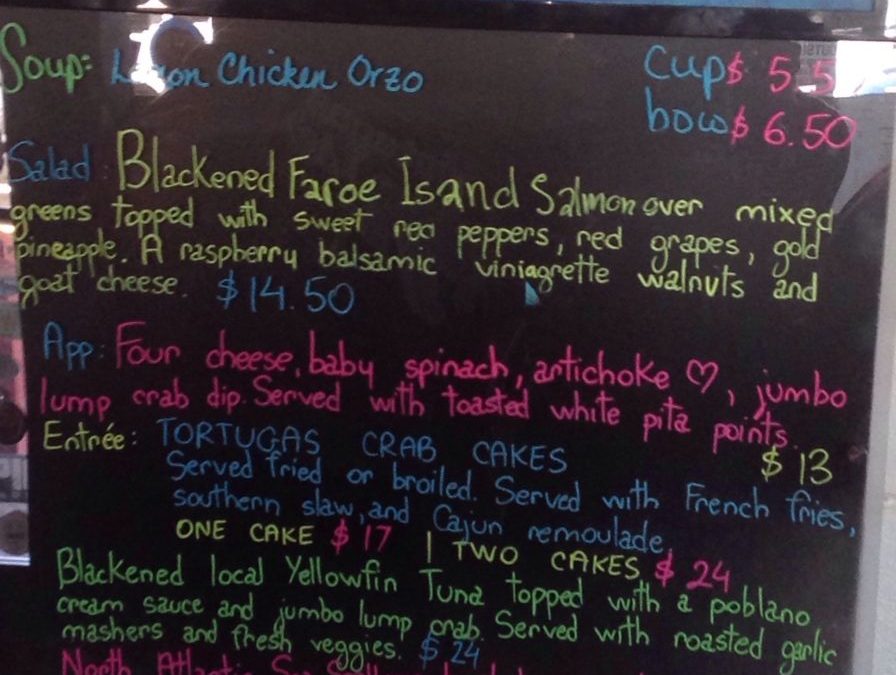 Soup: Lemon Chicken Orzo Cup $ 5.5
bowl $ 6.50
Salad: Blackened Faroe Isand Salmon over mixed
greens topped with sweet red peppers, red grapes, gold
pineapple. A raspberry balsamic viniagrette walnuts and
goat cheese. $14.50
App: Four cheese, baby spinach, artichoke ♡, jumbo
lump crab dip. Served with toasted white pita points.
$13
Entrée: TORTUGAS CRAB CAKES
Served fried or broiled. Served with French fries,
southern slaw, and Cajun remoulade.
ONE CAKE $17 | TWO CAKES $24
Blackened local Yellowfin Tuna topped with a poblano
cream sauce and jumbo lump crab. Served with roasted garlic
mashers and fresh veggies. $24
North Atlantic Sea